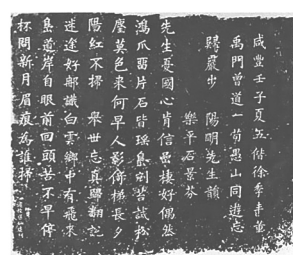 咸豐壬子夏五偕徐季青董
禹門曾道一荀愚山同遊忘
歸巖步 陽明先生韻
樂平石景芬
先生憂國心肯信岊棲好偶然
鴻爪畱片石皆瑤島剜苔試拂
塵莫色來何早人影倚梯長夕
陽紅不掃 舉世忘真歸翻
迷途好識白雲鄉中有飛來
島道岸自眼前回頭苦不早停
杯問新月眉痕為誰掃